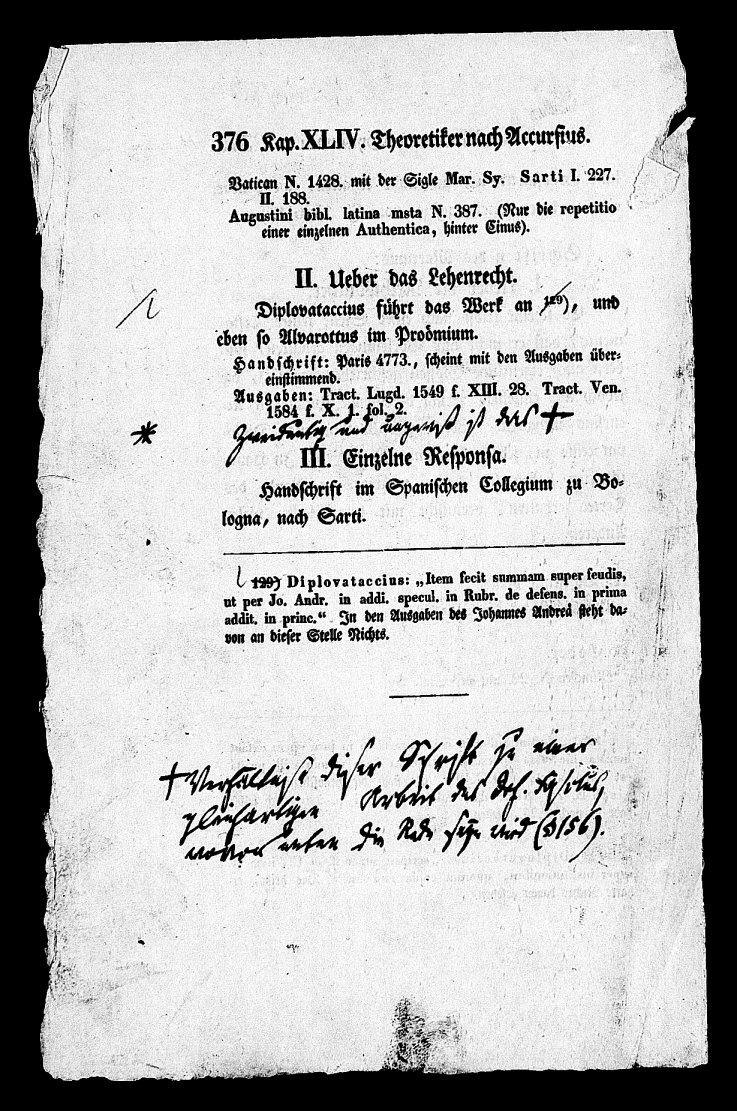 376 Kap. XLIV. Theoretiker nach Accursius.
Vatican N. 1428. mit der Sigle Mar. Sy. Sarti I. 227.
II. 188.
Augustini bibl. latina msta N. 387. (Nur die repetitio
einer einzelnen Authentica, hinter Cinus).
II. Ueber das Lehenrecht.
Diplovataccius führt das Werk an 129), und
eben so Alvarottus im Proömium.
Handschrift: Paris 4773., scheint mit den Ausgaben über-
einstimmend.
Ausgaben: Tract. Lugd. 1549 f. XIII. 28. Tract. Ven.
1584 f. X. 1. fol. 2.
* Zweideutig und ungewiß ist das +
III. Einzelne Responsa.
Handschrift im Spanischen Collegium zu Bo-
logna, nach Sarti.
129) Diplovataccius: „Item fecit summam super feudis,
ut per Jo. Andr. in addi. specul. in Rubr. de defens. in prima
addit. in princ.“ In den Ausgaben des Johannes Andreä steht da-
von an dieser Stelle Nichts.
+ Verhältniß dieser Schrift zu einer
gleichartigen Arbeit des
wovon unten die Rede seyn wird (§156).